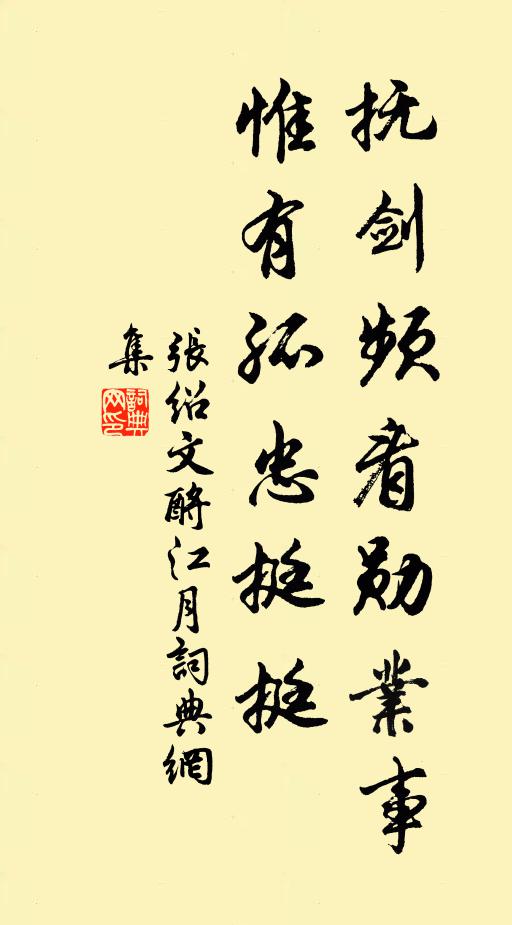 抚剑频看勋業事
惟有孤忠挺挺
張绍文酹江月詞典網
集
詞典
网印